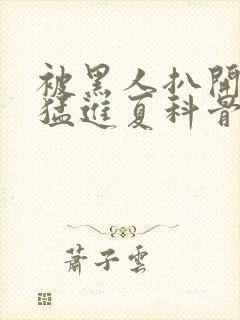 被黑人扒開
猛進夏科骨
蕭子雲